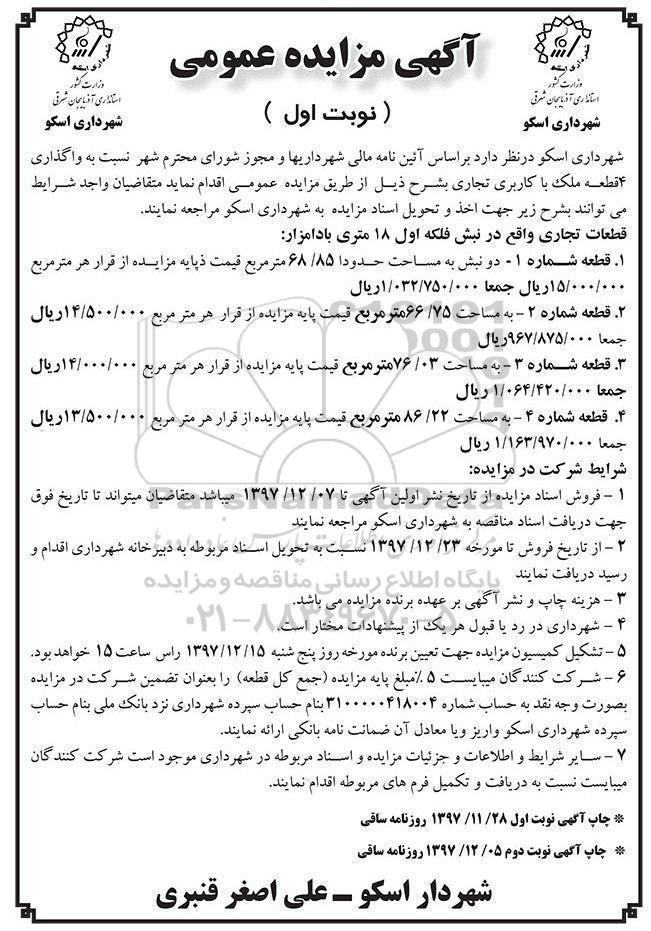 آگهی مزایده عمومی
( نوبت اول )
وزارت کشور
استانداری آذربایجان شرقی
شهرداری اسکو
وزارت کشور
استانداری آذربایجان شرقی
شهرداری اسکو
شهرداری اسکو درنظر دارد براساس آئین نامه مالی شهرداریها و مجوز شورای محترم شهر نسبت به واگذاری
۴قطعه ملک با کاربری تجاری بشرح ذیل از طریق مزایده عمومی اقدام نماید متقاضیان واجد شرایط
می توانند بشرح زیر جهت اخذ و تحویل اسناد مزایده به شهرداری اسکو مراجعه نمایند.
قطعات تجاری واقع در نبش فلکه اول ۱۸ متری بادامزار:
۱. قطعه شماره ۱ - دو نبش به مساحت حدودا ۸۵/ ۶۸ مترمربع قیمت ذپایه مزایده از قرار هر مترمربع
۱۵/۰۰۰/۰۰۰ریال جمعا ۱/۰۳۲/۷۵۰/۰۰۰ریال
۲. قطعه شماره ۲ - به مساحت ۷۵/ ۶۶مترمربع قیمت پایه مزایده از قرار هر متر مربع ۱۴/۵۰۰/۰۰۰ریال
جمعا ۹۶۷/۸۷۵/۰۰۰ریال
۳. قطعه شماره ۳ - به مساحت ۰۳/ ۷۶مترمربع قیمت پایه مزایده از قرار هر متر مربع ۱۴/۰۰۰/۰۰۰ریال
جمعا ۱/۰۶۴/۴۲۰/۰۰۰ ریال
۴. قطعه شماره ۴ - به مساحت ۲۲/ ۸۶ مترمربع قیمت پایه مزایده از قرار هر متر مربع ۱۳/۵۰۰/۰۰۰ریال
جمعا ۱/۱۶۳/۹۷۰/۰۰۰ ریال
شرایط شرکت در مزایده:
۱ - فروش اسناد مزایده از تاریخ نشر اولین آگهی تا ۰۷/ ۱۲/ ۱۳۹۷ میباشد متقاضیان میتواند تا تاریخ فوق
جهت دریافت اسناد مناقصه به شهرداری اسکو مراجعه نمایند
۲ - از تاریخ فروش تا مورخه ۲۳/ ۱۲/ ۱۳۹۷ نسبت به تحویل اسناد مربوطه به دبیرخانه شهرداری اقدام و
رسید دریافت نمایند
۳ - هزینه چاپ و نشر آگهی بر عهده برنده مزایده می باشد.
۴ - شهرداری در رد یا قبول هر یک از پیشنهادات مختار است.
۵ - تشکیل کمیسیون مزایده جهت تعیین برنده مورخه روز پنج شنبه ۱۳۹۷/۱۲/۱۵ راس ساعت ۱۵ خواهد بود.
۶ - شرکت کنندگان میبایست ۵ ٪مبلغ پایه مزایده (جمع کل قطعه) را بعنوان تضمین شرکت در مزایده
بصورت وجه نقد به حساب شماره ۳۱۰۰۰۰۰۴۱۸۰۰۴ بنام حساب سپرده شهرداری نزد بانک ملی بنام حساب
سپرده شهرداری اسکو واریز ویا معادل آن ضمانت نامه بانکی ارائه نمایند.
۷ - سایر شرایط و اطلاعات و جزئیات مزایده و اسناد مربوطه در شهرداری موجود است شرکت کنندگان
میبایست نسبت به دریافت و تکمیل فرم های مربوطه اقدام نمایند.
* چاپ آگهی نوبت اول ۲۸/ ۱۱/ ۱۳۹۷ روزنامه ساقی
* چاپ آگهی نوبت دوم ۰۵/ ۱۲/ ۱۳۹۷ روزنامه ساقی
شهردار اسکو ــ علی اصغر قنبری
ParsNamadData
پایگاه اطلاع رسانی مناقصه و مزایده
۰۲۱-۸۸۳۴۹۶۷۰-۵